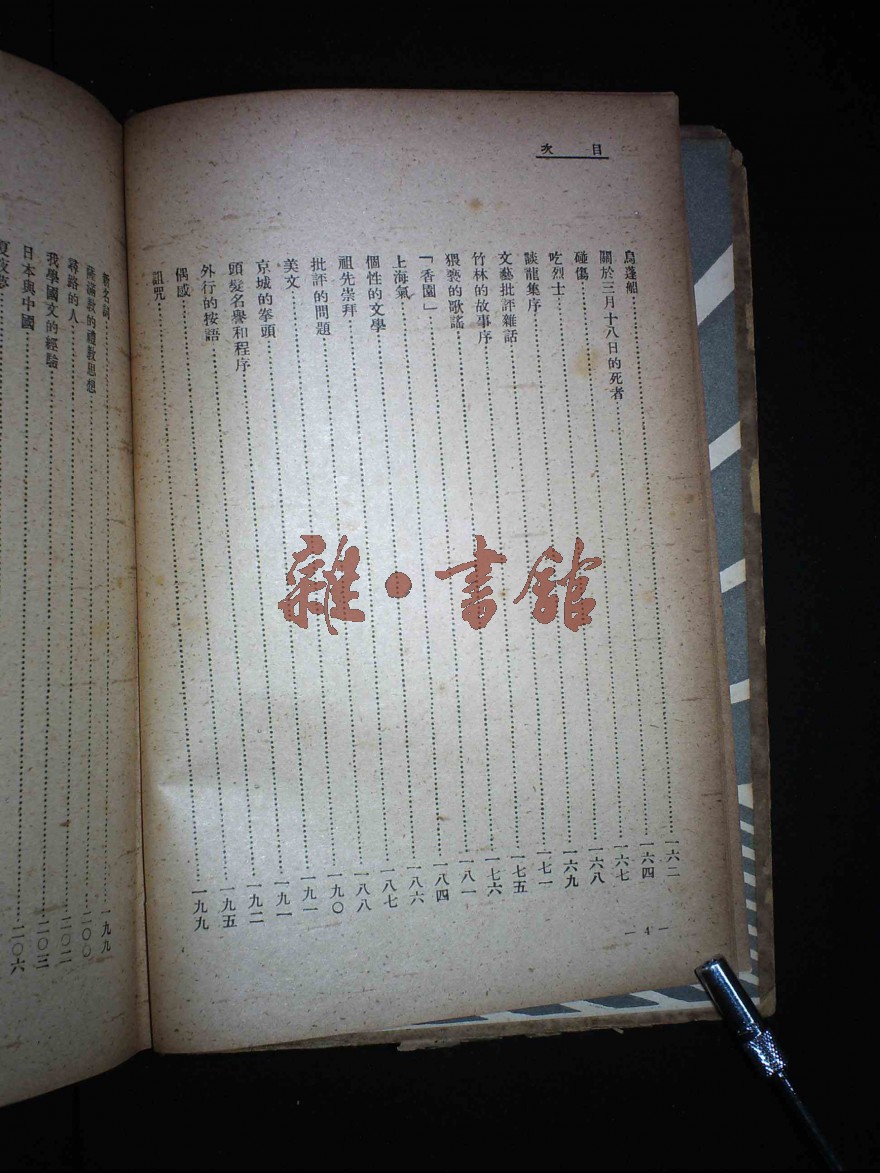 目次
烏蓬船 一六二
關於三月十八日的死者 一六四
碰傷 一六七
吃烈士 一六八
談龍集序 一六九
文藝批評雜話 一七一
竹林的故事序 一七五
猥褻的歌謠 一七六
「香園」 一八一
上海氣 一八四
個性的文學 一八六
祖先崇拜 一八七
批評的問題 一八八
美文 一九〇
京城的拳頭 一九一
頭髮名譽和程序 一九一
外行的按語 一九二
偶感 一九五
詛咒 一九九
— 4 —
新名詞 一九九
薩滿教的禮教思想 二〇〇
尋路的人 二〇二
我學國文的經驗 二〇三
日本與中國 二〇六
夏夜夢
雜·書館